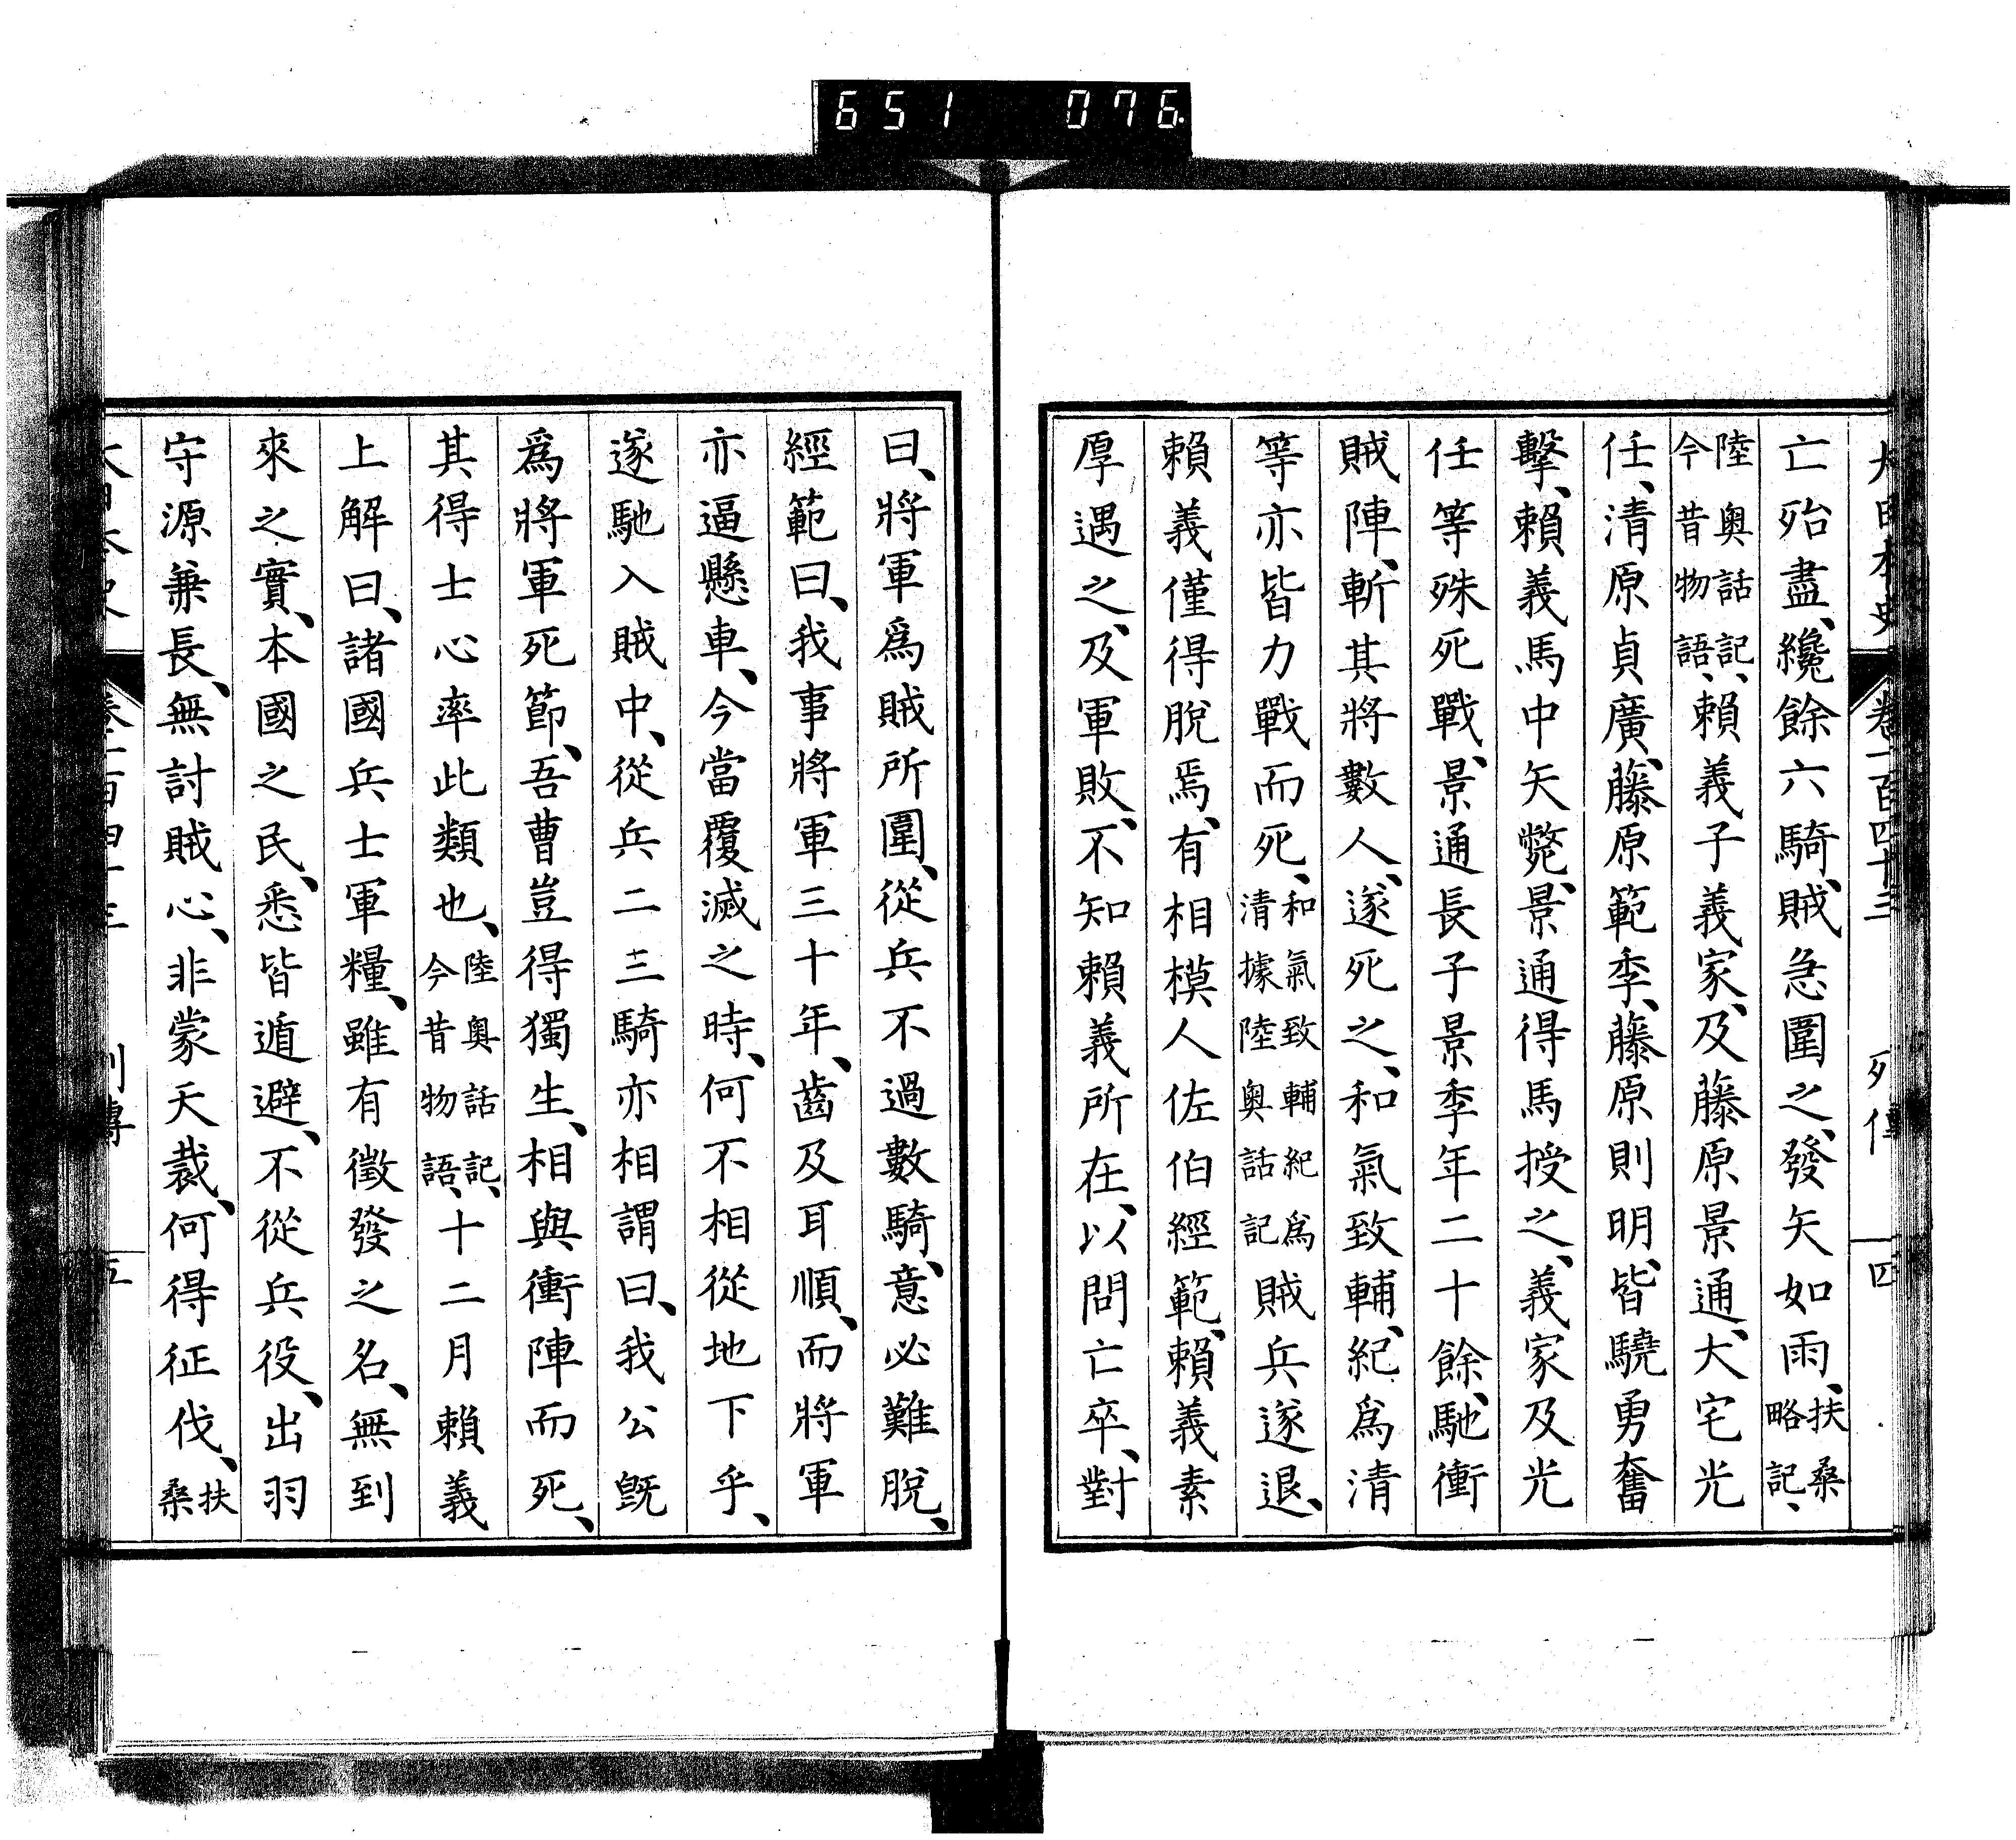 651 076
大日本史 卷一百四十三 列傳 四
亡殆盡、纔餘六騎、賊急圍之、發矢如雨、扶桑略記、
陸奧話記、今昔物語、賴義子義家、及藤原景通、大宅光
任、清原貞廣、藤原範季、藤原則明、皆驍勇奮
擊、賴義馬中矢斃、景通得馬授之、義家及光
任等殊死戰、景通長子景季年二十餘、馳衝
賊陣、斬其將數人、遂死之、和氣致輔、紀爲清
等亦皆力戰而死、和氣致輔紀爲清據陸奧話記賊兵遂退、
賴義僅得脫焉、有相模人佐伯經範、賴義素
厚遇之、及軍敗、不知賴義所在、以問亡卒、對
曰、將軍爲賊所圍、從兵不過數騎、意必難脫、
經範曰、我事將軍三十年、齒及耳順、而將軍
亦逼懸車、今當覆滅之時、何不相從地下乎、
遂馳入賊中、從兵二三騎亦相謂曰、我公既
爲將軍死節、吾曹豈得獨生、相與衝陣而死、
其得士心率此類也、陸奧話記、今昔物語、十二月賴義
上解曰、諸國兵士軍糧、雖有徵發之名、無到
來之實、本國之民、悉皆遁避、不從兵役、出羽
守源兼長、無討賊心、非蒙天裁、何得征伐、扶桑
大日本史 卷一百四十三 列傳 五